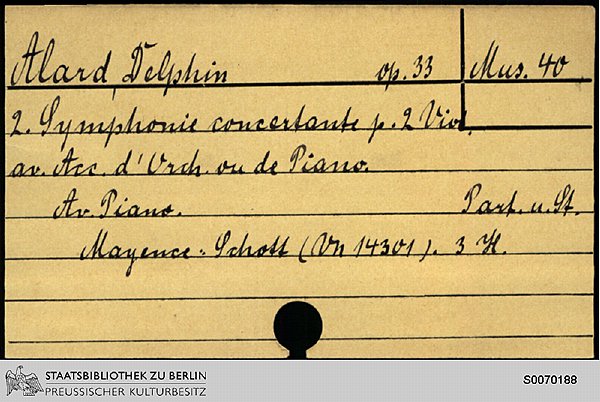 Alard, Delphin op. 33 Mus. 40
2. Symphonie concertante p. 2 Viol.
av. Acc. d'Orch. ou de Piano.
Av. Piano. Part. u. St.
Mayence: Schott (Vn 14301). 3 H.
STAATSBIBLIOTHEK ZU BERLIN
PREUSSISCHER KULTURBESITZ
S0070188